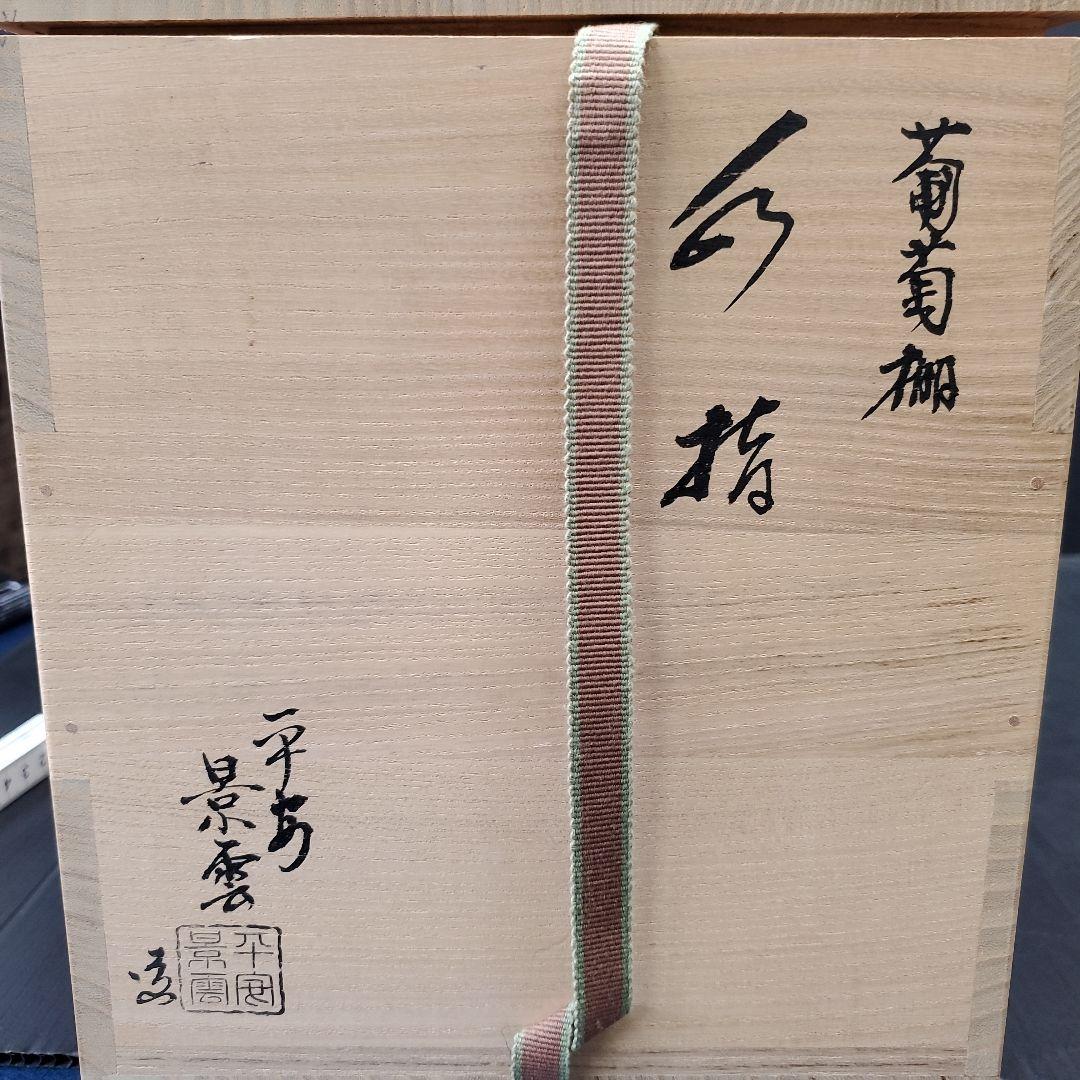 葡萄棚
水指
平安
景雲
造
平安
景雲
2 3 4